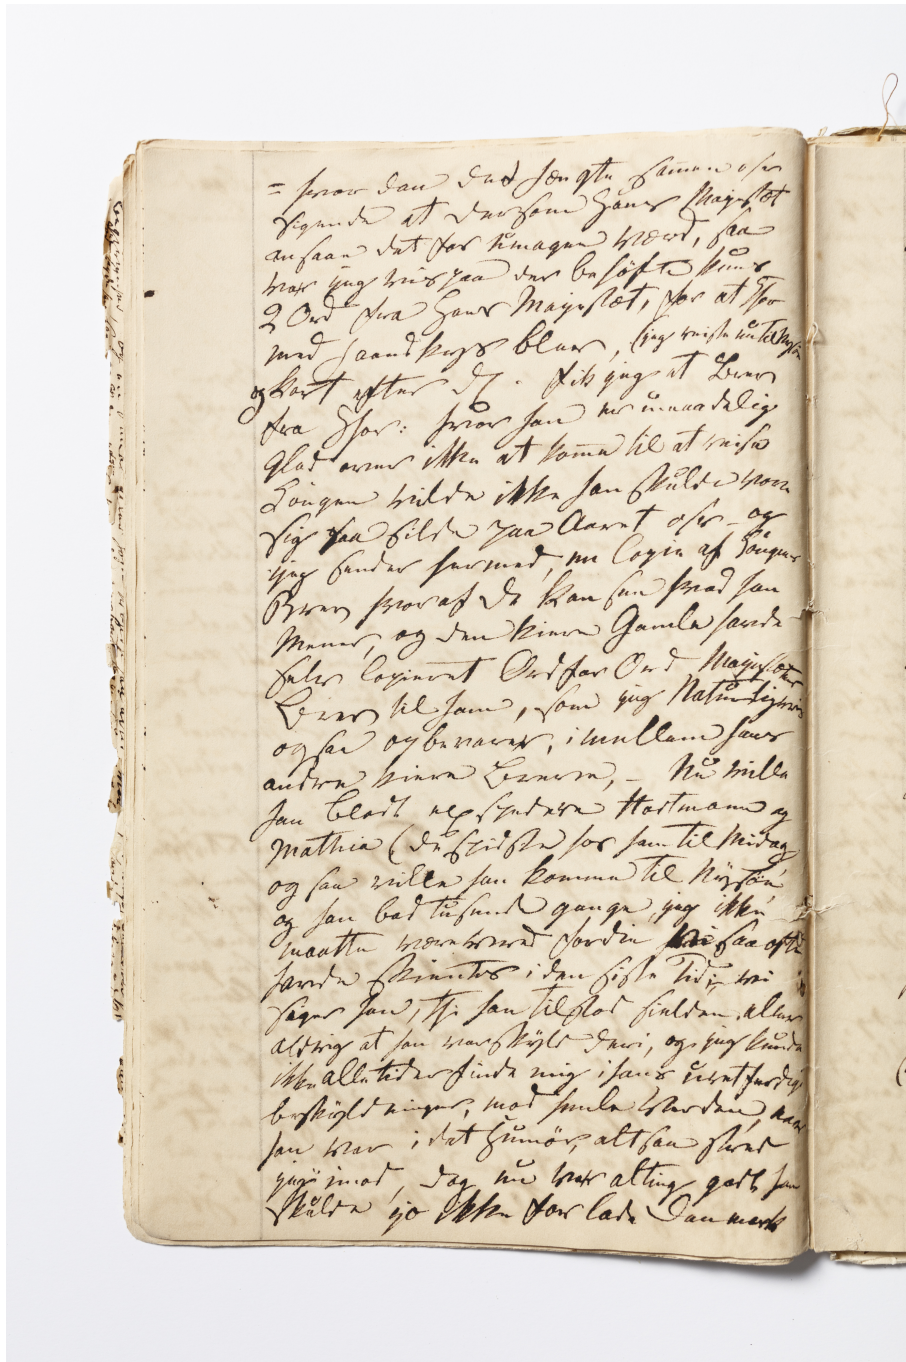 = hvordan det hængte sammen osv
sigende at dersom Hans Majestæt
ansaae det for Umagen værd, saa
var jeg vis paa der behøfte kuns
2 Ord fra Hans Majestæt, for at Thor
med Haandkys blev, (jeg reiste nu til Nysøe
og kort efter fik jeg at Brev
fra Thor: hvor han er umaadelig
Glad over ikke at komme til at reise
Kongen vilde ikke han skulde vove
sig saa silde paa Aaret osv – og
jeg sender hermed, en Copie af Kongens
Brev hvoraf De kan see hvad han
mener, og den kiere Gamle havde
selv Copieret Ord for Ord Majestætens
Brev til ham, som jeg Naturligviis
ogsaa opbevarer, imellem hans
andre kiere Breve, – Nu ville
han blodt expedere Hartmann og
Mathia (de spidste hos ham til Midag
og saa ville han komme til Nysøe
og han bad tusende gange, jeg ikke
maatte være vred fordie vi saa ofte
havde skientes i den siste Tid, – vi
siger han, thi han tilstod sielden eller
aldrig at han var skyld deri, og jeg kunde
ikke alletider finde mig i hans uretferdige
beskyldninger, mod heele Verden, naar
han var i det Humør, altsaa stred
jeg imod, dog nu var alting godt han
skulde jo ikke forlade Danmark